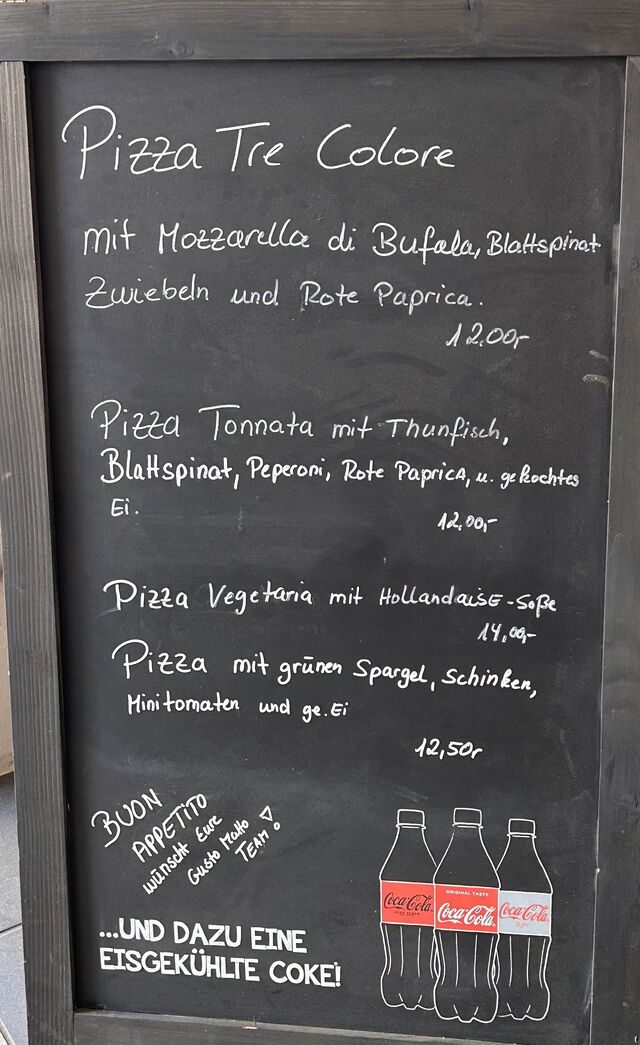 Pizza Tre Colore
mit Mozzarella di Bufala, Blattspinat
Zwiebeln und Rote Paprica.
12.00,-
Pizza Tonnata mit Thunfisch,
Blattspinat, Peperoni, Rote Paprica, u. gekochtes
Ei.
12,00,-
Pizza Vegetaria mit Hollandaise-Soße
14,00,-
Pizza mit grünen Spargel, Schinken,
Minitomaten und ge. Ei
12,50,-
BUON
APPETITO
wünscht Eure
Gusto Matto
TEAM!
...UND DAZU EINE
EISGEKÜHLTE COKE!
Coca-Cola
ORIGINAL TASTE
Coca-Cola
Coca-Cola
light